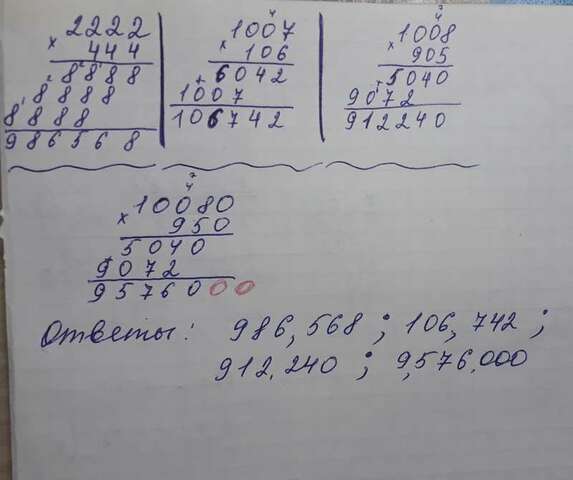 2222
× 444
8888
8888
8888
986568
1007
× 106
6042
1007
106742
1008
× 905
5040
9072
912240
10080
× 950
5040
9072
9576000
Ответы: 986,568 ; 106,742 ;
912,240 ; 9,576,000